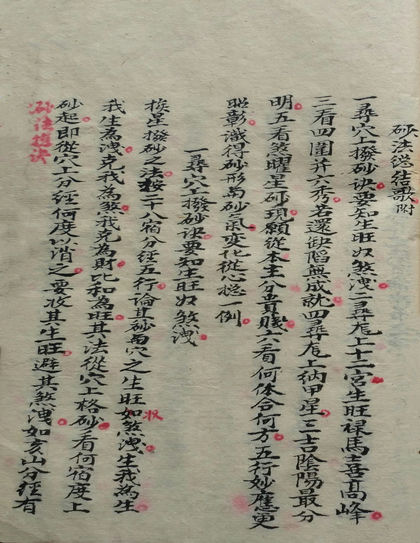 砂法從生歌附
一尋穴上撥砂訣要知生旺奴煞洩二尋龍上十二宮生旺祿馬喜高峰
三看四圍并六秀若還缺陷無成就四尋龍上納甲星三吉陰陽最分
明五看煞曜星砂現願從本主分貴賤六看何体合何方五行妙應更
昭彰識得砂形与砂氣变化從心總一例
一尋穴上撥砂訣要知生旺奴煞洩
挨星撥砂之法按二十八宿分經五行論其砂而穴之生旺奴煞洩生我為生
我生為洩克我為煞我克為財比和為旺其法從穴上格砂看何宿度上
砂起即從穴上分經何度以消之要收其生旺避其煞洩如亥山分經有
砂法捷決